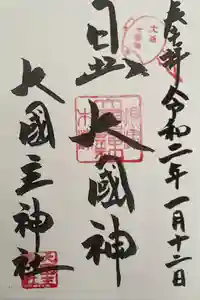 奉拝 令和二年一月十二日
日出大國神
大國主神社